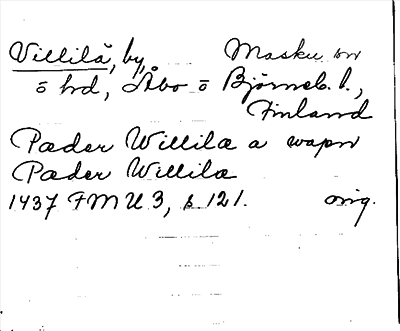 Villilä, by, Masku sn
o hd, Åbo o Björneb. l.,
Finland
Pæder Willilæ a wapn
Pæder Willilæ
1437 FMU 3, s 121. orig.